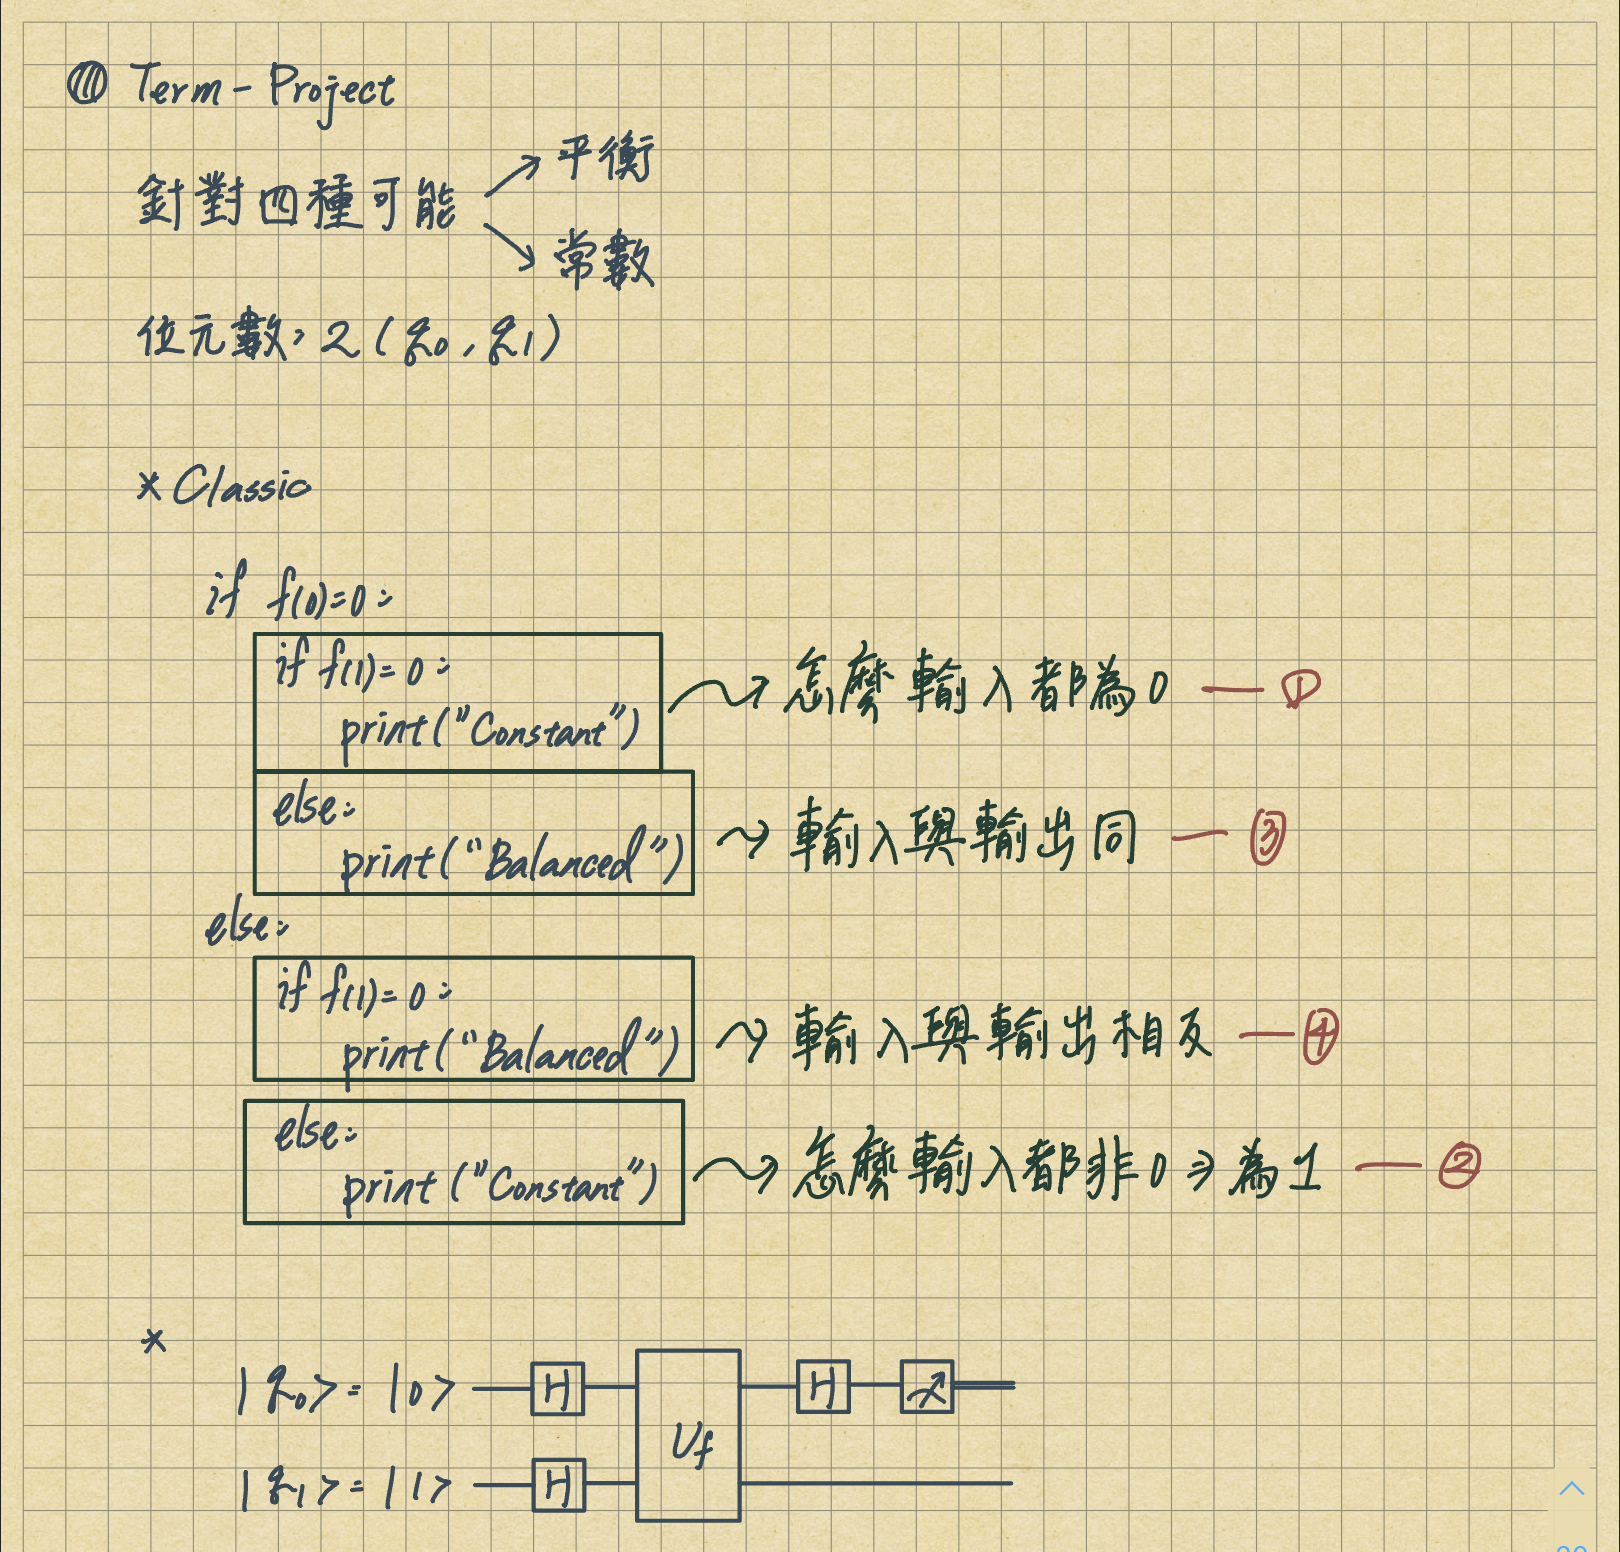 Term-Project
針對四種可能
平衡
常數
位元數: 2 (q0, q1)
* Classic
if f(0)=0:
if f(1)=0:
print("Constant")
怎麼輸入都為0 — ①
else:
print("Balanced")
輸入與輸出同 — ③
else:
if f(1)=0:
print("Balanced")
輸入與輸出相反 — ④
else:
print("Constant")
怎麼輸入都非0 ⇒ 為1 — ②
*
|q0> = |0> H Uf H
|q1> = |1> H